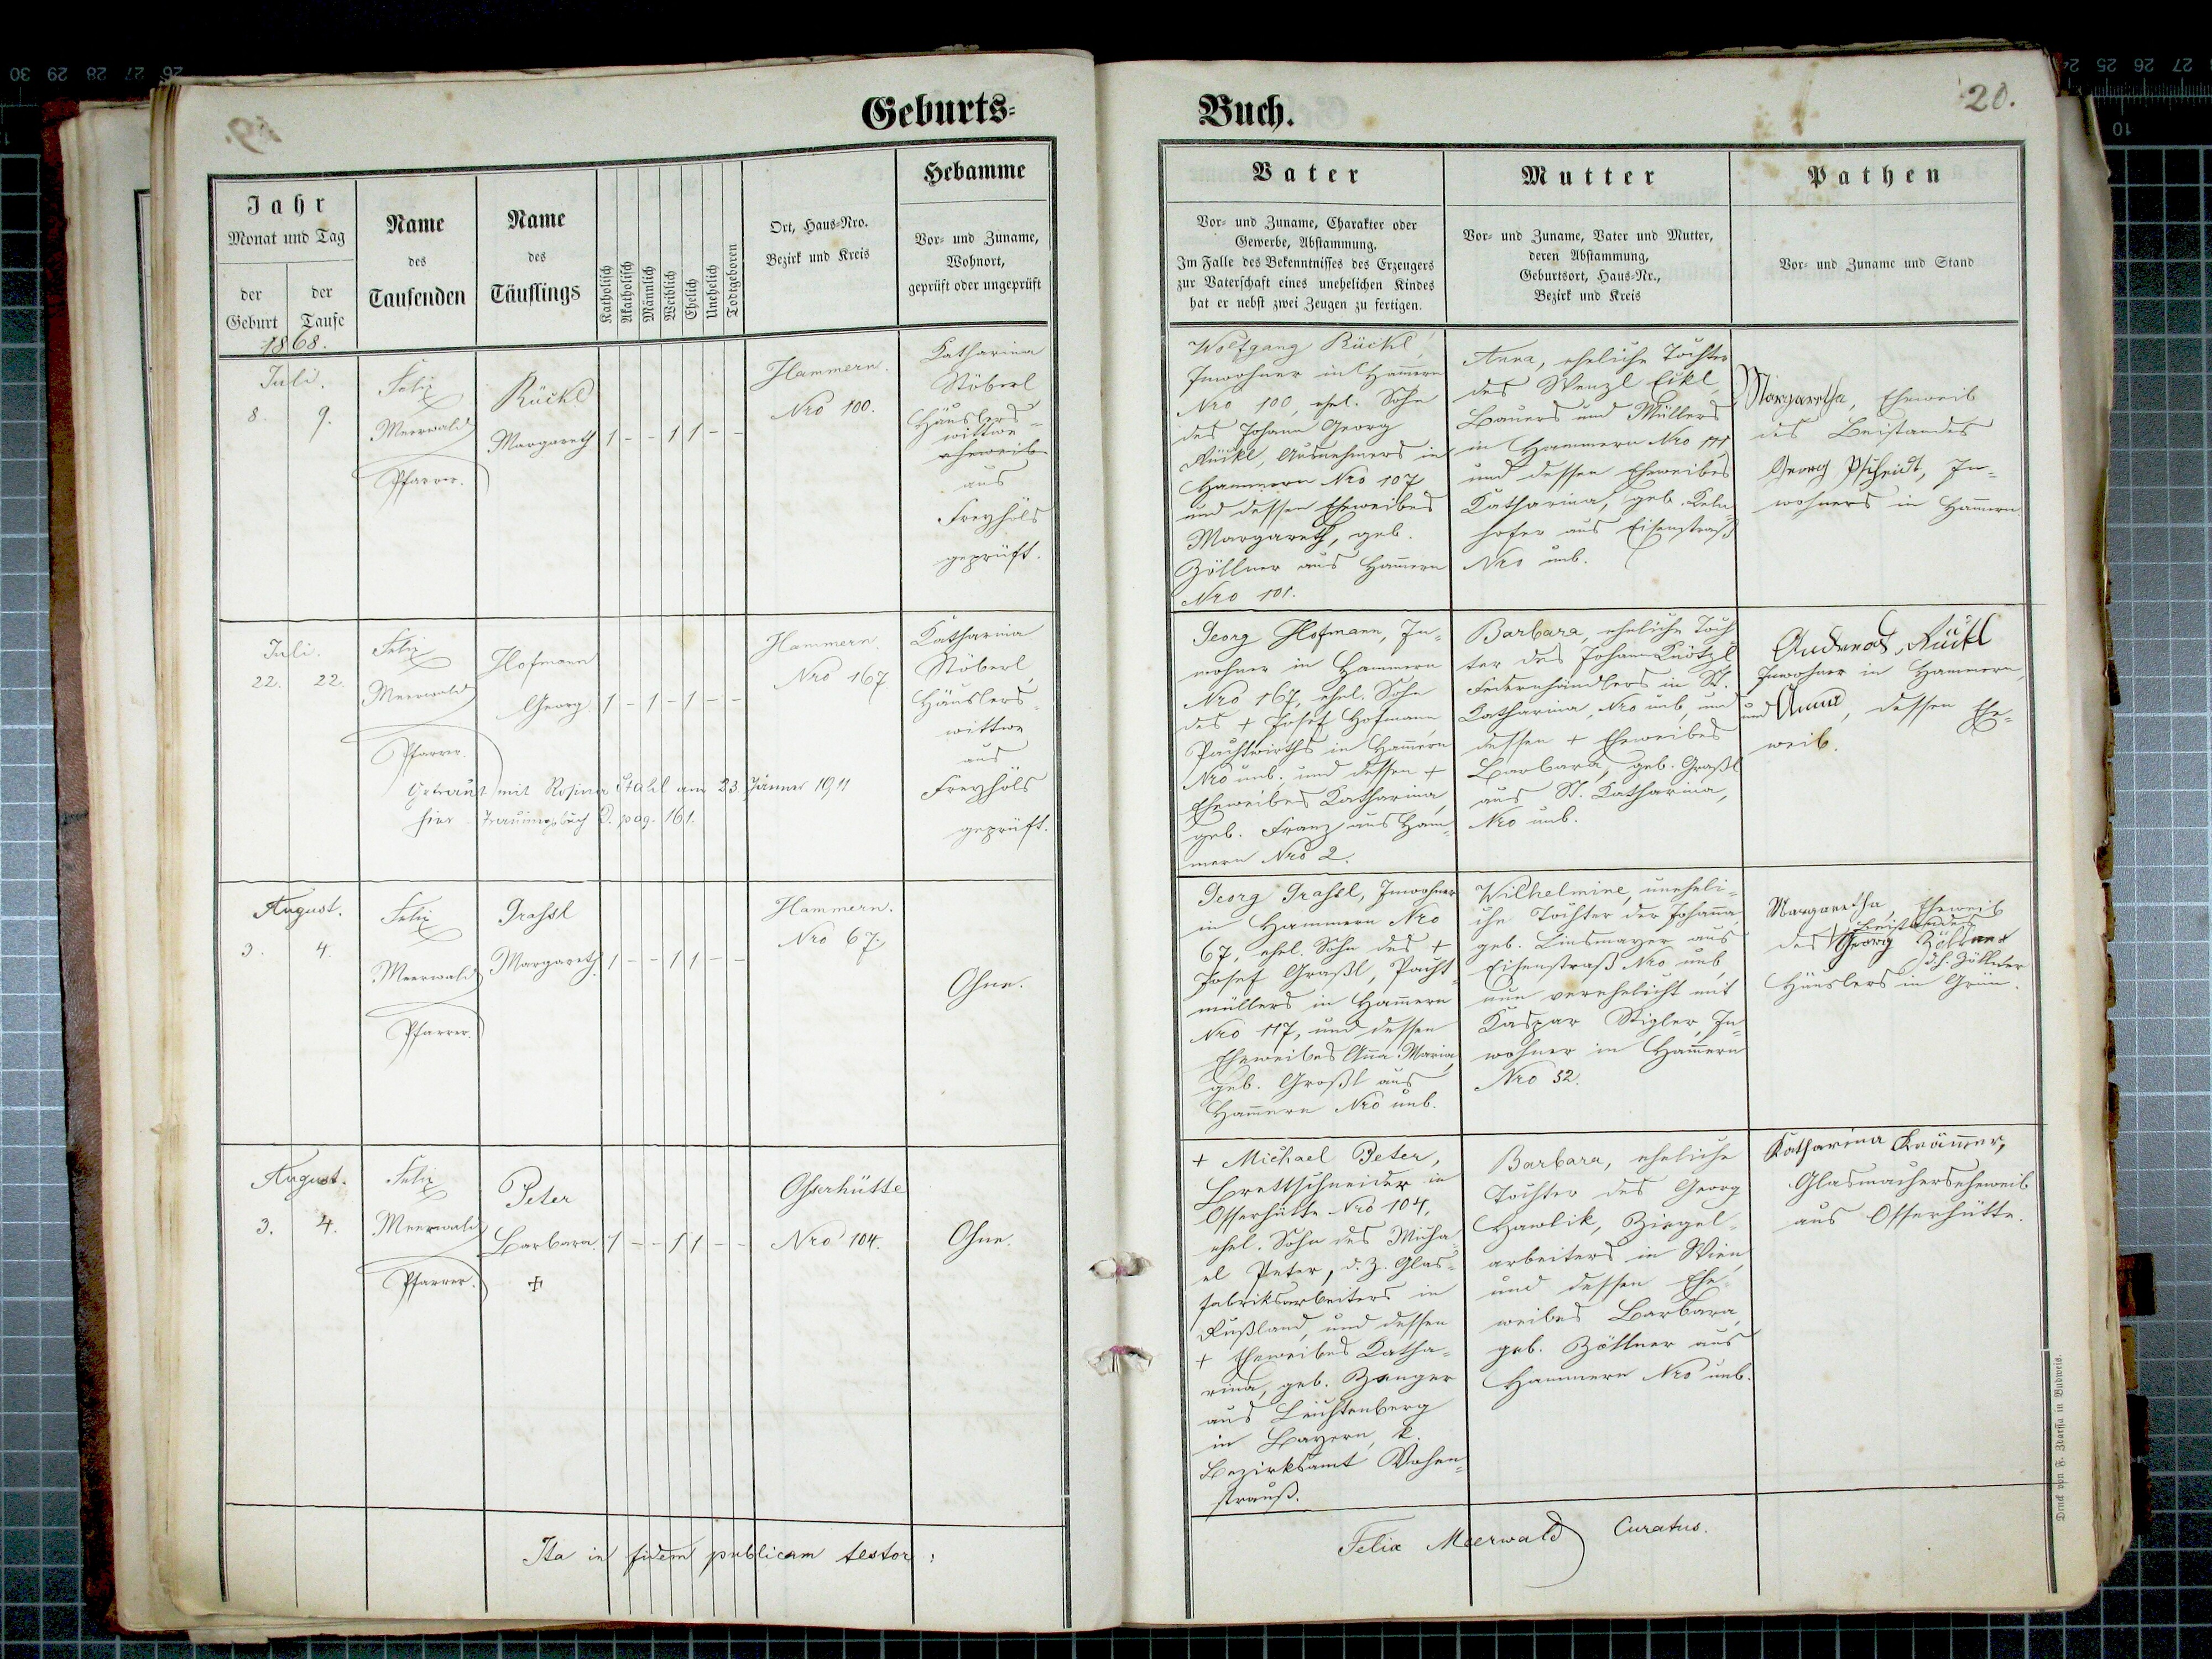 Geburts-
Buch.
20.
Jahr
Monat und Tag
der Geburt
der Taufe
Name des Taufenden
Name des Täuflings
Katholisch
Akatholisch
Männlich
Weiblich
Ehelich
Unehelich
Todtgeboren
Ort, Haus-Nro.
Bezirk und Kreis
Hebamme
Vor- und Zuname,
Wohnort,
geprüft oder ungeprüft
Vater
Vor- und Zuname, Charakter oder
Gewerbe, Abstammung.
Im Falle des Bekenntnisses des Erzeugers
zur Vaterschaft eines unehelichen Kindes
hat er nebst zwei Zeugen zu fertigen.
Mutter
Vor- und Zuname, Vater und Mutter,
deren Abstammung,
Geburtsort, Haus-Nr.,
Bezirk und Kreis
Pathen
Vor- und Zuname und Stand
1868.
Juli.
8. 9.
Felix
Meerwald
Pfarrer.
Rückl
Margareth
1 - - 1 1 - -
Hammern.
Nro 100.
Katharina
Stöberl
Häuslers-
wittwe
eheweib
aus
Freyhöls
geprüft.
Wolfgang Rückl,
Inwohner in Hammern
Nro 100, ehel. Sohn
des Johann Georg
Rückl, Ausnehmers in
Hammern Nro 107
und dessen Eheweibes
Margareth, geb.
Zöllner aus Hammern
Nro 101.
Anna, eheliche Tochter
des Wenzl Eckl,
Bauers und Müllers
in Hammern Nro 111
und dessen Eheweibes
Katharina, geb.
hofer aus Eisenstraß
Nro unb.
Margaretha, Eheweib
des Beistandes
Georg Pscheidt, In-
wohners in Hammern.
Juli.
22. 22.
Felix
Meerwald
Pfarrer.
Hofmann
Georg
1 - 1 - 1 - -
Hammern.
Nro 167
Katharina
Stöberl,
Häuslers-
wittwe
aus
Freyhöls
geprüft.
Getraut mit Rosina Stahl am 23. Jänner 1911
hier. Trauungsbuch D. pag. 161.
Georg Hofmann, In-
wohner in Hammern
Nro 167, ehel. Sohn
des + Josef Hofmann
Pachtwirths in Hammern
Nro unb. und dessen +
Eheweibes Katharina,
geb. Franz aus Ham-
mern Nro 2.
Barbara, eheliche Toch-
ter des Johann Knötzl
Federnhändlers in St.
Katharina, Nro unb, und
dessen + Eheweibes
Barbara, geb. Graßl
aus St. Katharina,
Nro unb.
Andreas Rückl
Inwohner in Hammern,
und Anna, dessen Ehe-
weib.
August.
3. 4.
Felix
Meerwald
Pfarrer.
Grassl
Margareth.
1 - - 1 1 - -
Hammern.
Nro 67.
Ohne.
Georg Grassl, Inwohner
in Hammern Nro
67, ehel. Sohn des +
Josef Graßl, Pacht-
müllers in Hammern
Nro 117, und dessen
Eheweibes Anna Maria,
geb. Großl aus
Hammern Nro unb.
Wilhelmine, uneheli-
che Tochter der Johanna
geb. Linsmayer aus
Eisenstraß Nro unb,
nun verehelicht mit
Kaspar Stigler, In-
wohner in Hammern
Nro 52.
Margaretha, Eheweib
des Beistandes
Georg Zöllner
d. h. Zöllner
Häuslers in Grün.
August.
3. 4.
Felix
Meerwald
Pfarrer.
Peter
Barbara.
+
1 - - 1 1 - -
Osserhütte
Nro 104.
Ohne.
+ Michael Peter,
Brettschneider in
Osserhütte Nro 104,
ehel. Sohn des Micha-
el Peter, d. Z. Glas-
fabriksarbeiters in
Rußland, und dessen
+ Eheweibes Katha-
rina, geb. Zenger
aus Leuchtenberg
in Bayern, k.
Bezirksamt Vohen-
strauß.
Barbara, eheliche
Tochter des Georg
Hawlik, Ziegel-
arbeiters in Wien,
und dessen Ehe-
weibes Barbara,
geb. Zöllner aus
Hammern Nro unb.
Katharina Krämer,
Glasmachersehweib
aus Osserhütte.
Ita in fidem publicam testor:
Felix Meerwald Curatus.
Druck von F. Zdarssa in Budweis.